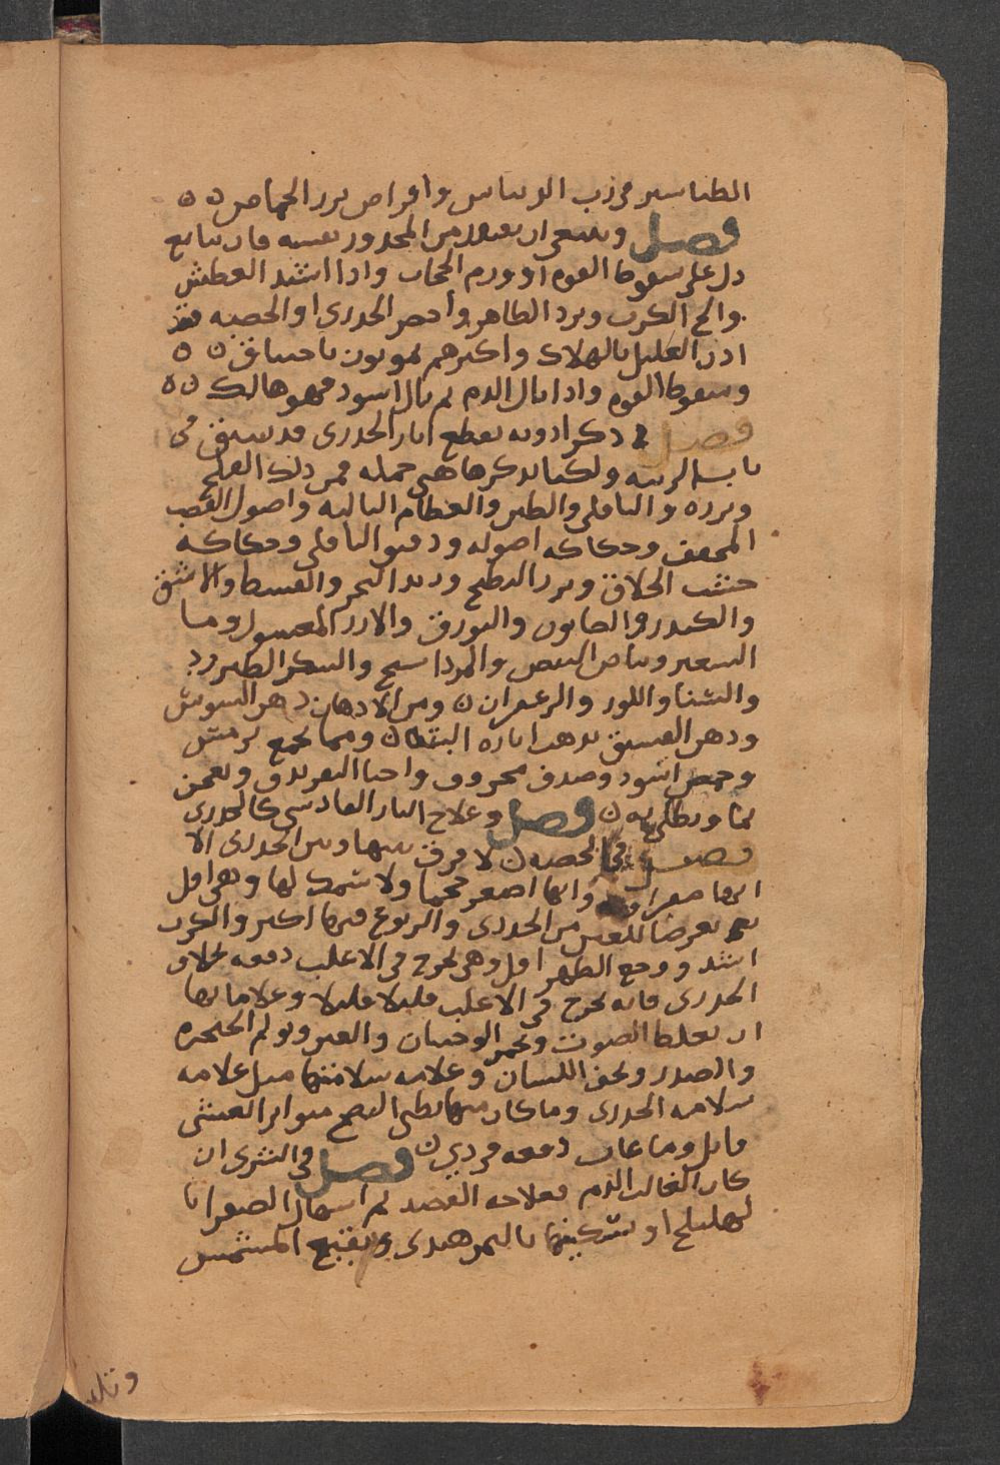 الطباشير مرزب الريباس واقراص بزر الحماض ه ه
فصل وينبغي ان يتفقد من المجدور نفسه فان تتابع
دل على سقوط القوه او ورم الحجاب واذا اشتد العطش
والح الكرب وبرد الظاهر واخضر الجدري او الحصبه فقد
اذن العليل بالهلاك واكثرهم يموتون باختناق ه ه
وسقوط القوه واذا بال الدم ثم بال اسود فهو هالك ه ه
فصل في ذكر ادويه تقطع اثار الجدري قد سبق في
باب الزينه ولكنا نذكر ها هي جمله فمن ذلك الفجل
وبزره والباقلى والطين والعظام الباليه واصول القصب
المجفف وحكاكه اصوله ودقيق الباقلى وحكاكه
خشب الخلاف وبزر البطيخ وزبد البحر والقسط والاشق
والكندر والصابون والبورق والارز المغسول وما
الشعير وبياض البيض والمرداسنج والسكر الطبرزد
والنشا واللوز والزعفران ه ومن الادهان دهن السوسن
ودهن الفستق يذهب اثاره البته ه ومما يجمع ترمس
وحمص اسود وصدف محروق واخثا البقر يدق ويعجن
بما ويطلى به ه فصل وعلاج النار الفارسي كالجدري
فصل في الحصبه ه لا فرق بينها وبين الجدري الا
انها صفراويه وانها اصغر حجما ولا سمك لها وهي اقل
تعرضا للعين من الجدري والتهوع فيها اكثر والكرب
اشد ووجع الظهر اقل وهي تخرج في الاغلب دفعه بخلاف
الجدري فانه يخرج في الاغلب قليلا قليلا وعلاماتها
ان يغلظ الصوت وتحمر الوجنتان والعين ويولم الحنجره
والصدر ويجف اللسان وعلامه سلامتها مثل علامه
سلامه الجدري وما كان منها بطي النضج متواتر الغشي
قاتل وما غاب دفعه فردي ه فصل في الشرى ان
كان الغالب الدم فعلاجه الفصد ثم اسهال الصفرا با
لهليلج او تسكينها بالتمر هندي ونقيع المشمش